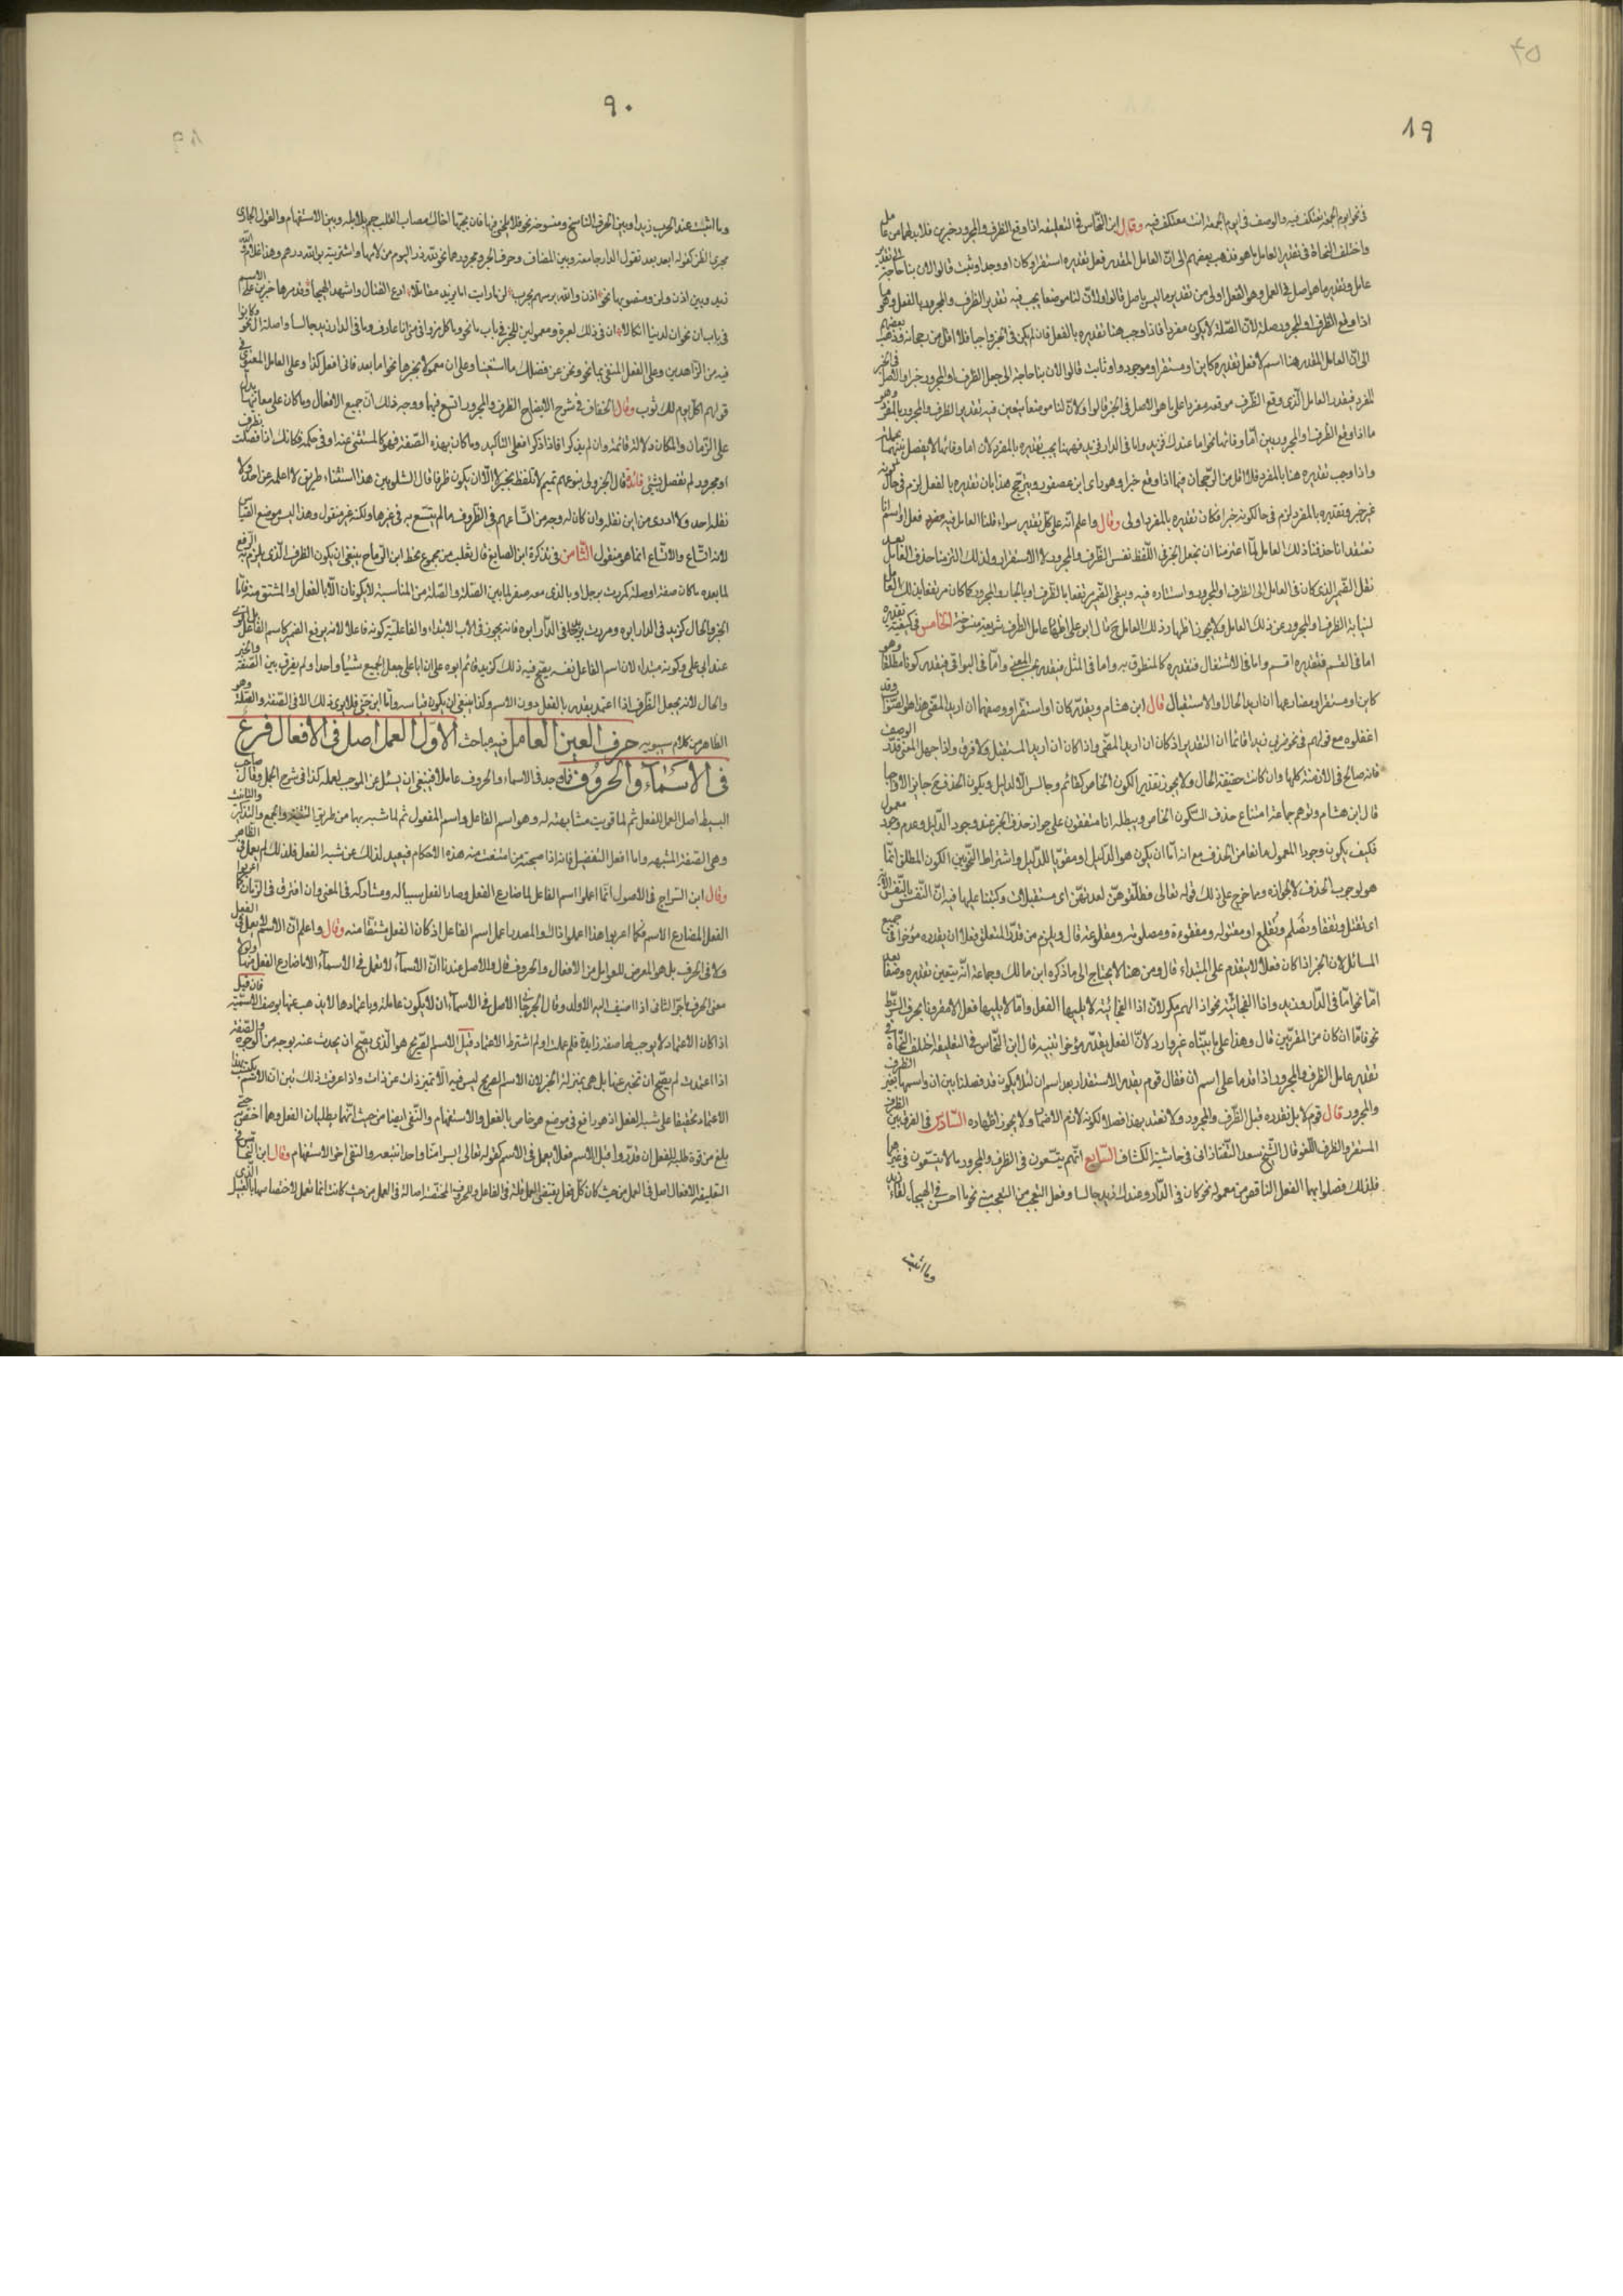 ٨٩
في نحو ايوم الجمعة تعتكف فيه والوصف في ايوم الجمعة انت معتكف فيه وقال ابن النحاس في التعليقة اذا وقع الظرف والمجرور خبرين فلابد لهما من عامل
واختلف النحاة في تقدير العامل ما هو فذهب بعضهم الى ان العامل المقدر فعل تقديره استقر او كان او وجد او ثبت قالوا لان بنا حاجة الى تقدير
عامل وتقدير ما هو اصل في العمل وهو الفعل اولى من تقدير ما ليس باصل قالوا ولان لنا موضعا يجب فيه تقدير الظرف والمجرور بالفعل وهو ما
اذا وقع الظرف او المجرور صلة لان الصلة لا يكون مفردا فاذا وجب هنا تقديره بالفعل فان لم يكن في الخبر واجبا فلا اقل من رجحانه وذهب بعضهم
الى ان العامل المقدر هنا اسم لا فعل تقديره كاين او مستقر او موجود او ثابت قالوا لان بنا حاجة الى جعل الظرف او المجرور خبرا والاصل في الخبر
المفرد فيقدر العامل الذي وقع الظرف موقعه مفردا على ما هو الاصل في الخبر قالوا ولان لنا موضعا يتعين فيه تقدير الظرف والمجرور بالمفرد وهو
ما اذا وقع الظرف او المجرور بين اما وفائها نحو اما عندك فزيد واما في الدار فزيد فههنا يجب تقديره بالمفرد لان اما وفائها لا يفصل بينهما بجملة
واذا وجب تقديره هنا بالمفرد فلا اقل من الرجحان فيما اذا وقع خبرا وهو راى ابن عصفور ويترجح هذا بان تقديره بالفعل لزم في حال كونه
غير خبر وتقديره بالمفرد لزم في حال كونه خبرا فكان تقديره بالمفرد اولى وقال واعلم انه على كل تقدير سواء قلنا العامل فيه فعل او اسم انا
نعتقد انا حذفنا ذلك العامل لما اعتزمنا ان نجعل الخبر في اللفظ نفس الظرف والمجرور لا الاستقرار ولذلك التزمنا حذف العامل بعد
نقل الضمير الذي كان في العامل الى الظرف او المجرور واستتاره فيه ويبقى الضمير مرتفعا بالظرف او بالجار والمجرور كما كان مرتفعا بذلك العامل
لنيابة الظرف او المجرور عن ذلك العامل ولا يجوز اظهار ذلك العامل قال ابو علي اظهار عامل الظرف شريعة منسوخة الخامس في كيفية تقديره
اما في القسم فتقديره اقسم واما في الاشتغال فتقديره كالمنطوق به واما في المثل فيقدر بحسب المعنى واما في البواقي فيقدر كونا مطلقا وهو
كاين او مستقر او مضارعهما ان اريد الحال والاستقبال قال ابن هشام ويقدر كان او استقر او وصفهما ان اريد المضي هذا هو الصواب وقد
اغفلوه مع قولهم في نحو ضربي زيدا قائما ان التقدير اذ كان ان اريد المضي واذا كان ان اريد المستقبل ولا فرق واذا جهل المعنى قدر الوصف
فانه صالح في الازمنة كلها وان كانت حقيقته الحال ولا يجوز تقدير الكون الخاص كقائم وجالس الا لدليل ويكون الحذف ح جايزا لا واجبا
قال ابن هشام وتوهم جماعة امتناع حذف الكون الخاص ويبطله انا متفقون على جواز حذف الخبر عند وجود الدليل وعدم وجود معمول
فكيف يكون وجود المعمول مانعا من الحذف مع انه اما ان يكون هو الدليل او مقويا للدليل واشتراط النحويين الكون المطلق انما
هو لوجوب الحذف لا لجوازه ومما خرج على ذلك قوله تعالى فطلقوهن لعدتهن اى مستقبلات وكتبنا عليهم فيها ان النفس بالنفس الآية
اى تقتل وتفقا وتصلم وتقلع او مقتولة ومفقوءة ومصلومة ومقلوعة قال ويلزم من قدر المتعلق فعلا ان يقدره مؤخرا في جميع
المسائل لان الخبر اذا كان فعلا لا يتقدم على المبتداء قال ومن هنا لا يحتاج الى ما ذكره ابن مالك وجماعة انه يتعين تقديره وصفا بعد
اما نحو اما في الدار فزيد واذا الفجائية نحو اذا لهم مكر لان اذا الفجائية لا يليها الفعل واما لا يليها فعل الا مقرونا بحرف الشرط
نحو فاما ان كان من المقربين قال وهذا على ما بيناه غير وارد لان الفعل يقدر مؤخرا تنبيه قال ابن النحاس في التعليقة اختلف النحاة في
تقدير عامل الظرف والمجرور اذا قدما على اسم ان فقال قوم يقدر الاستقرار بعد اسم ان لئلا يكون قد فصلنا بين ان واسمها بغير الظرف
والمجرور قال قوم لا بل نقدره قبل الظرف والمجرور ولا نعتد بهذا فصلا لكونه لازم الاضمار ولا يجوز اظهاره السادس في الفرق بين الظرف
المستقر والظرف اللغو قال الشيخ سعد الدين التفتازاني في حاشية الكشاف السابع انهم يتسعون في الظرف والمجرور ما لا يتسعون في غيرهما
فلذلك فصلوا بهما الفعل الناقص من معموله نحو كان في الدار وعندك زيد جالسا وفعل التعجب من المتعجب منه نحو ما احسن في الهيجاء لقاء زيد
وما اثبت
٩٠
وما اثبت عند الحرب زيدا وبين الحرف الناسخ ومنسوخه نحو فلا تلحني فيها فان بحبها اخاك مصاب القلب جم بلابله وبين الاستفهام والقول الجاري
مجرى الظن كقوله ابعد بعد تقول الدار جامعة وبين المضاف وحرف الجر ومجرورهما نحو لله در اليوم من لامها واشتريته بوالله درهم وهذا غلام والله
زيد وبين اذن ولن ومنصوبهما نحو اذن والله نرميهم بحرب لن ما رايت ابا يزيد مقاتلا ادع القتال واشهد الهيجا وقدموهما خبرين على الاسم
في باب ان نحو ان لدينا انكالا ان في ذلك لعبرة ومعمولين للخبر في باب ما نحو وما كل من وافى منى انا عارف وما في الدار زيد جالسا واصلة ال نحو وكانوا
فيه من الزاهدين وعلى الفعل المنفي بما نحو ونحن عن فضلك ما استغنينا وعلى ان معمولا لخبرها نحو اما بعد فاني افعل كذا وعلى العامل المعنوي في
قولهم اكل يوم لك ثوب وقال الخفاف في شرح الايضاح الظرف والمجرور اتسع فيهما ووجه ذلك ان جميع الافعال وما كان على معانيها يدل
على الزمان والمكان دلالة قائمة وان لم يذكرا فاذا ذكرا فعلى التاكيد وما كان بهذه الصفة فهو كالمستغنى عنه او في حكمه فكانك اذا فصلت بظرف
او مجرور لم تفصل بشئ فائدة قال الجزولي بنو تميم لا تلفظ بخبر لا الا ان يكون ظرفا قال الشلوبين هذا استثناء طريق لا اعلمه عن احد ولا
نقله احد ولا ادري من اين نقله وان كان له وجه من اتساعهم في الظروف ما لم يتسع به في غيرها ولكنه غير منقول وهذا ليس موضع القياس
لانه اتساع والاتساع انما هو منقول الثامن في تذكرة ابن الصايغ قال نقلت من مجموع بخط ابن الرماح ينبغي ان يكون الظرف الذي يلزم به الرفع
لما بعده ما كان صفة او صلة كمررت برجل او بالذي معه صقر لما بين الصلة والصلة من المناسبة لا يكونان الا بالفعل او المشتق منه فاما
الخبر والحال كزيد في الدار ابوه ومررت بزيد في الدار ابوه فانه يجوز في الاب الابتداء والفاعلية كونه فاعلا لانه يرفع الضمير كاسم الفاعل بل اقوى
عند ابي علي وكونه مبتداء لان اسم الفاعل نفسه يقبح فيه ذلك كزيد قائم ابوه على ان ابا علي جعل الجميع شيئا واحدا ولم يفرق بين الصفة والخبر
والحال لانه يجعل الظرف اذا اعتمد يقدر بالفعل دون الاسم وكذا ينبغي ان يكون قياسه واما ابن جني فلا يرى ذلك الا في الصفة والصلة وهو
الظاهر من كلام سيبويه حرف العين العامل فيه مباحث الاول العمل اصل في الافعال فرع
في الاسماء والحروف فما وجد في الاسماء والحروف عاملا فينبغي ان يسئل عن الموجب لعمله كذا في شرح الجمل وقال صاحب
البسيط اصل العمل للفعل ثم لما قويت مشابهته له وهو اسم الفاعل واسم المفعول ثم لما شبه بهما من طريق التثنية والجمع والتذكير والتانيث
وهي الصفة المشبهة واما افعل التفضيل فانه اذا صحبته من امتنعت منه هذه الاحكام فيبعد لذلك عن شبه الفعل فلذلك لم يعمل في الظاهر
وقال ابن السراج في الاصول انما اعملوا اسم الفاعل لما ضارع الفعل وصار الفعل سببا له وشاركه في المعنى وان افترقا في الزمان كما اعربوا
الفعل المضارع الاسم فكما اعربوا هذا اعملوا ذاك والمصدر اعمل اسم الفاعل اذ كان الفعل مشتقا منه وقال واعلم ان الاسم لا يعمل في الفعل
ولا في الحرف بل هو المعرض للعوامل من الافعال والحروف قال والاصل عندنا ان الاسماء لا تعمل في الاسماء الا ما ضارع الفعل منها او كان
معنى الحرف فاجر الثاني اذا اضيف اليه الاول وقال الجرجاني الاصل في الاسماء ان لا يكون عاملة وباعتمادها لا يذهب عنها بوصف الاسمية فان قيل
اذا كان الاعتماد لا يوجب لها صفة زايدة فلم عملت ولم اشترط الاعتماد قيل الاسم الصريح هو الذي يصح ان يحدث عنه بوجه من الوجوه والصفة
اذا اعتمدت لم يصح ان تخبر عنها بل هي بمنزلة الخبر لان الاسم الصريح ليس فيه الا تميز ذات عن ذات واذا عرفت ذلك تبين ان الاسم يكتسب
الاعتماد تحقيقا على شبه الفعل اذ هو رافع في موضع هو خاص بالفعل والاستفهام والنفي ايضا من حيث انهما يطلبان الفعل وهما اخص به حتى
بلغ من قوة طلبه للفعل ان قدروا قبل الاسم فعلا يعمل في الاسم كقوله تعالى ابشرا منا واحدا نتبعه والنفي اخو الاستفهام وقال ابن النحاس في
التعليقة الافعال اصل في العمل من حيث كان كل فعل يقتضي العمل اقله في الفاعل والحروف المختصة اصالة في العمل من حيث كانت انما تعمل لاختصاصها بالقبيل الذي